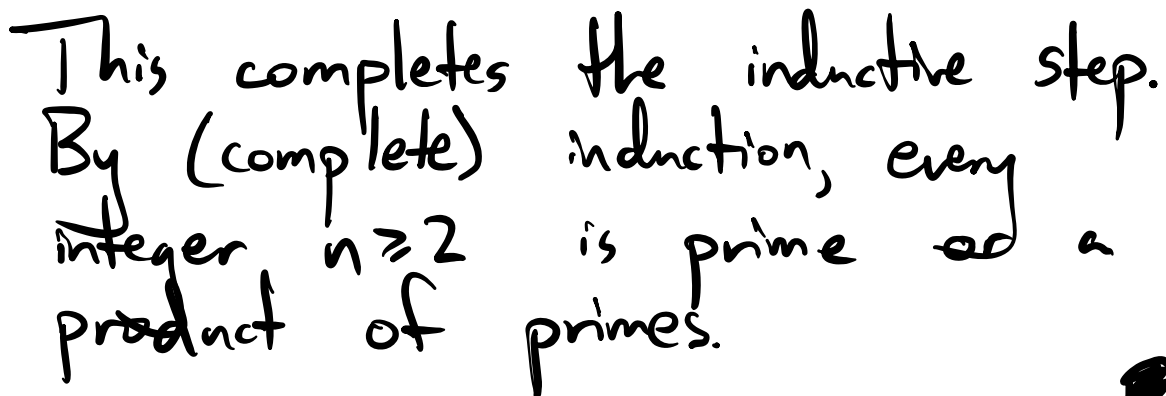 This completes the inductive step.
By (complete) induction, every
integer n ⩾ 2 is prime or a
product of primes.